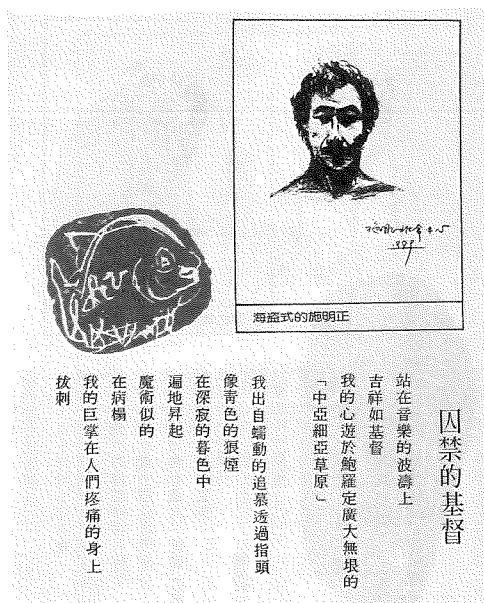 海盜式的施明正
囚禁的基督
站在音樂的波濤上
吉祥如基督
我的心遊於鮑羅定廣大無垠的
「中亞細亞草原」
我出自蠕動的追慕透過指頭
像青色的狼煙
在深寂的暮色中
遍地昇起
魔術似的
在病榻
我的巨掌在人們疼痛的身上
拔刺